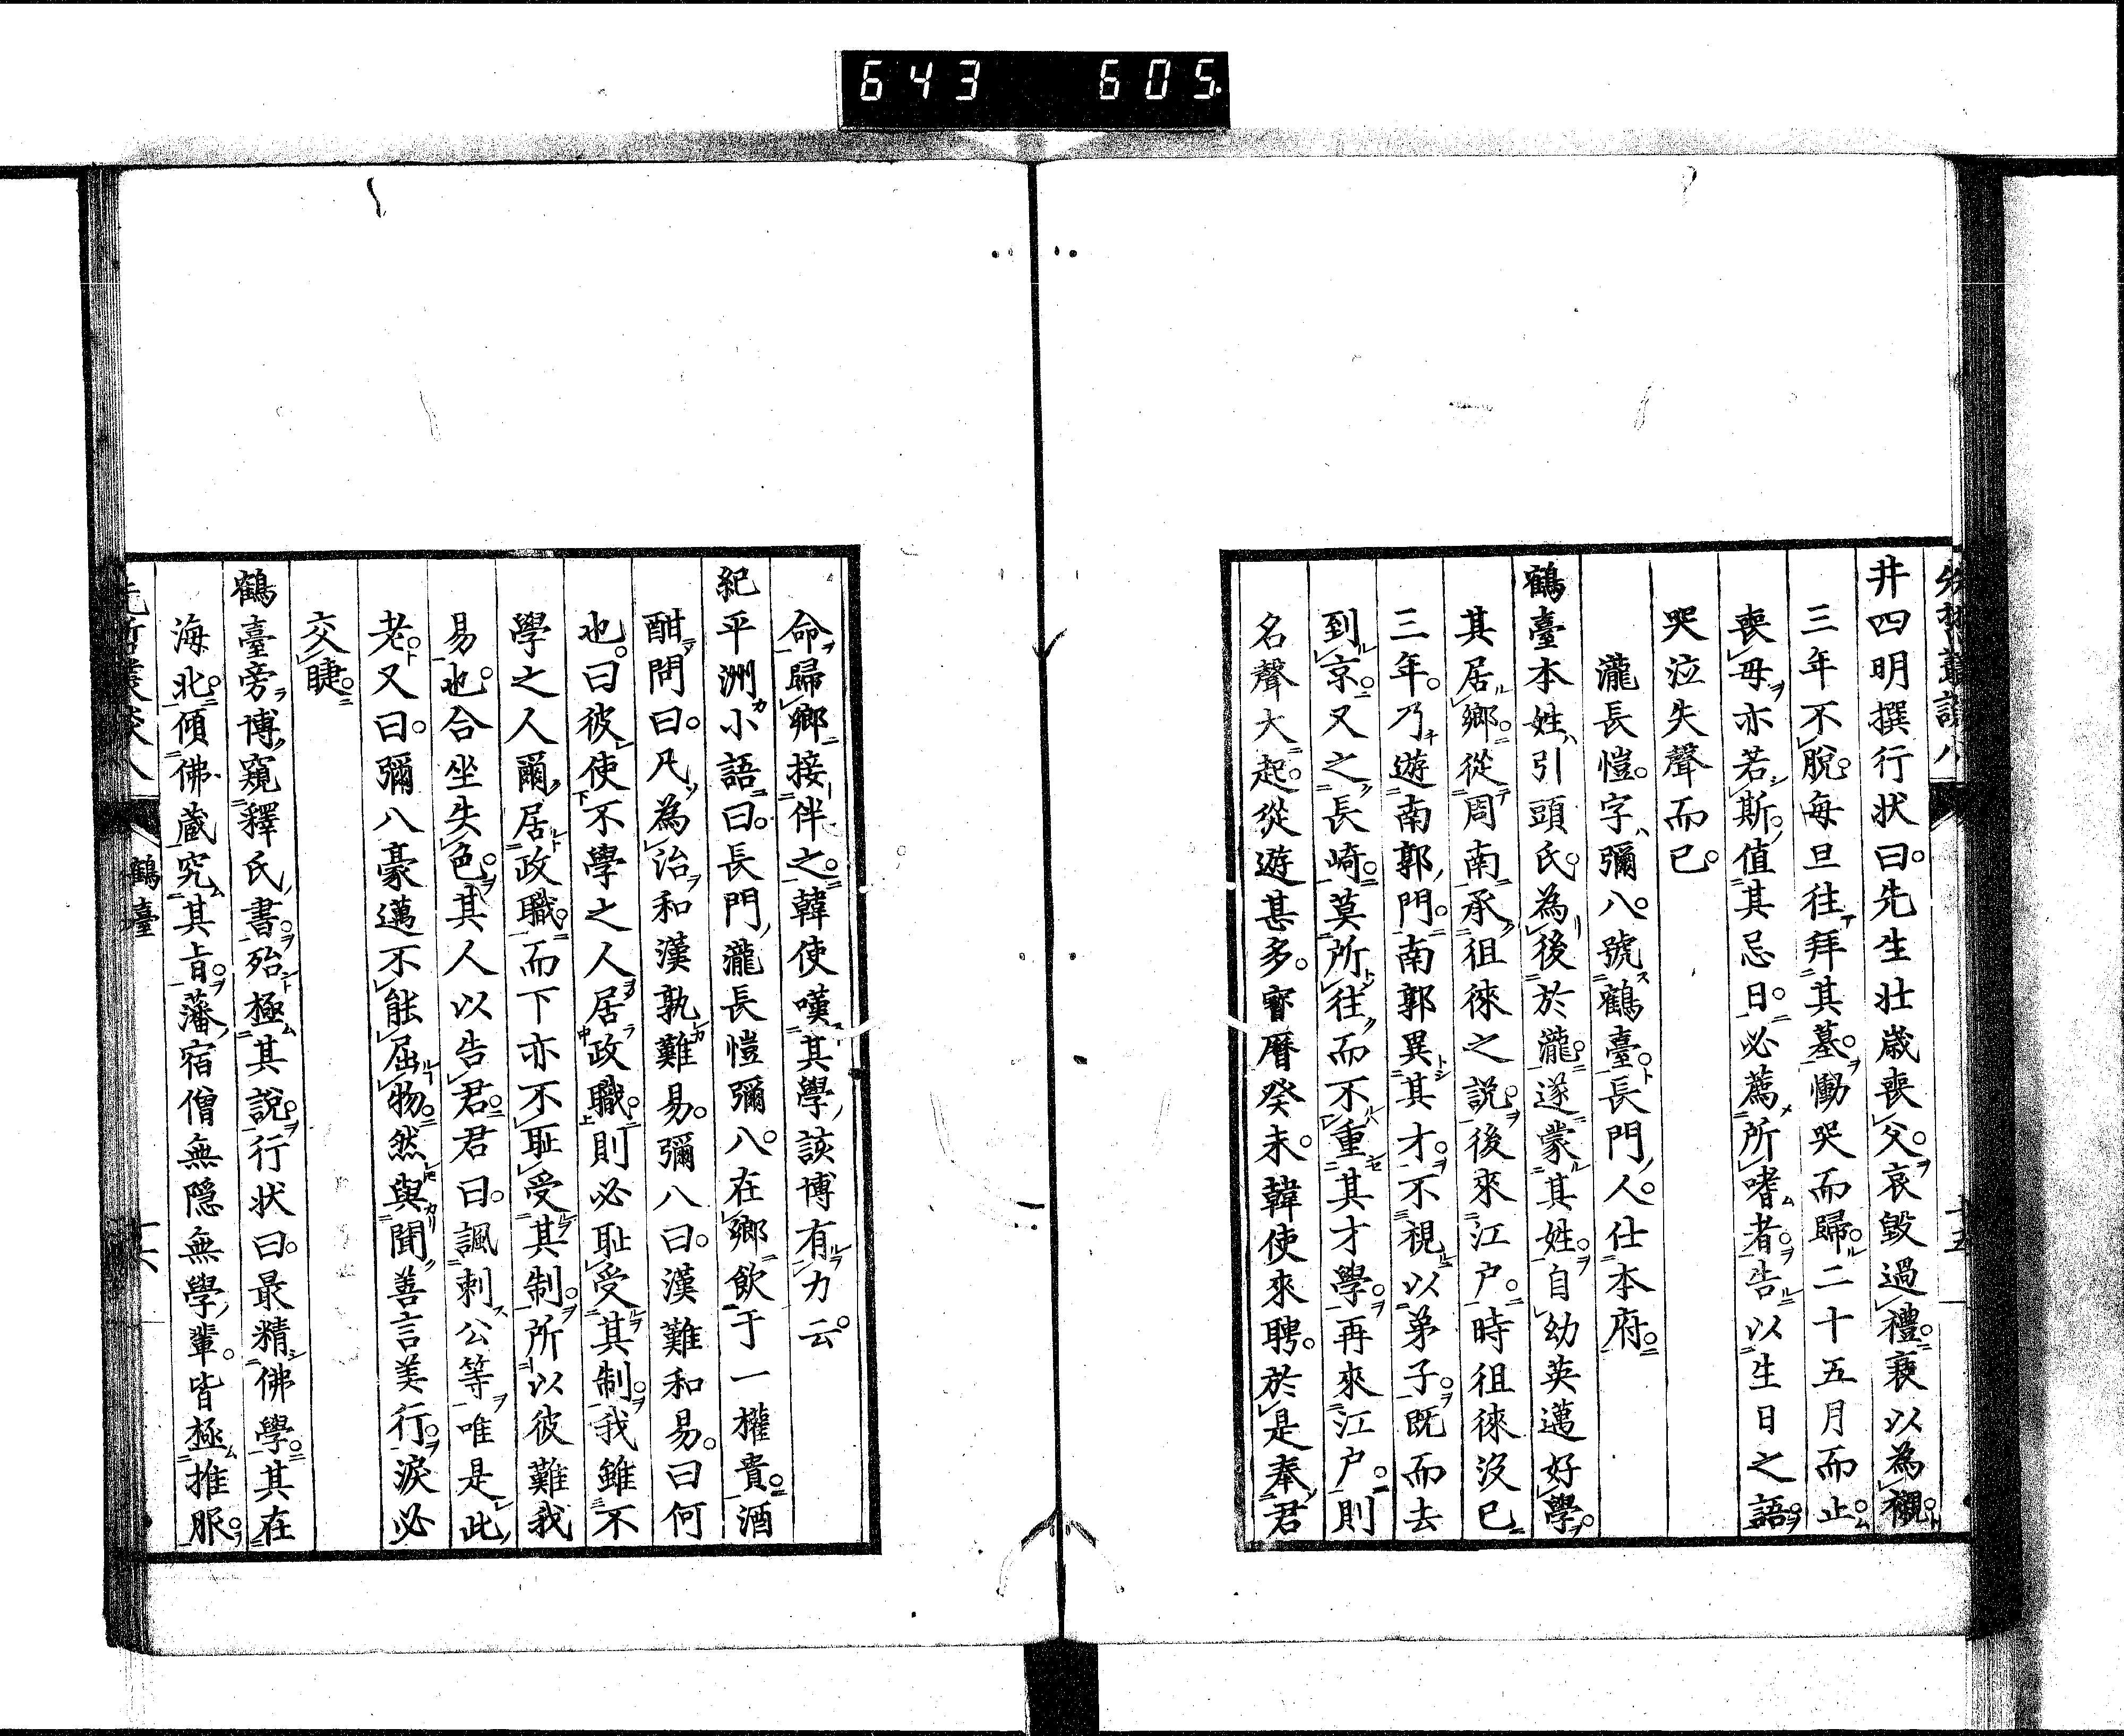 643 605
先哲叢談八
井四明撰行状曰。先生壮歳喪父。哀毀過禮。裒以為襯。
三年不脫。每旦往拜其墓。慟哭而歸。二十五月而止。
喪母亦若斯。值其忌日。必薦所嗜者。告以生日之語。
哭泣失聲而已。
瀧長愷。字彌八。號鶴臺。長門人。仕本府。
鶴臺本姓引頭氏。為後於瀧。遂蒙其姓。自幼英邁好學。
其居鄉。從周南承徂徠之説。後來江户。時徂徠沒已
三年。乃遊南郭門。南郭異其才。不視以弟子。既而去
到京。又之長崎。莫所往而不重其才學。再來江户。則
名聲大起。從遊甚多。寳暦癸未。韓使來聘。於是奉君
命歸鄉接伴之。韓使嘆其學該博有力云。
紀平洲小語曰。長門瀧長愷彌八。在鄉飲于一權貴。酒
酣問曰。凡為治和漢孰難易。彌八曰。漢難和易。曰何
也。曰彼使不學之人居政職。則必耻受其制。我雖不
學之人爾居政職。而下亦不耻受其制。所以彼難我
易也。合坐失色。其人以告君。君曰。諷刺公等。唯是此
老。又曰。彌八豪邁不能屈物。然與聞善言美行。淚必
交睫。
鶴臺旁博窺釋氏書。殆極其說。行状曰。最精佛學。其在
海北。傾佛蔵究其旨。藩宿僧無隱無學輩。皆極推服。
鶴臺